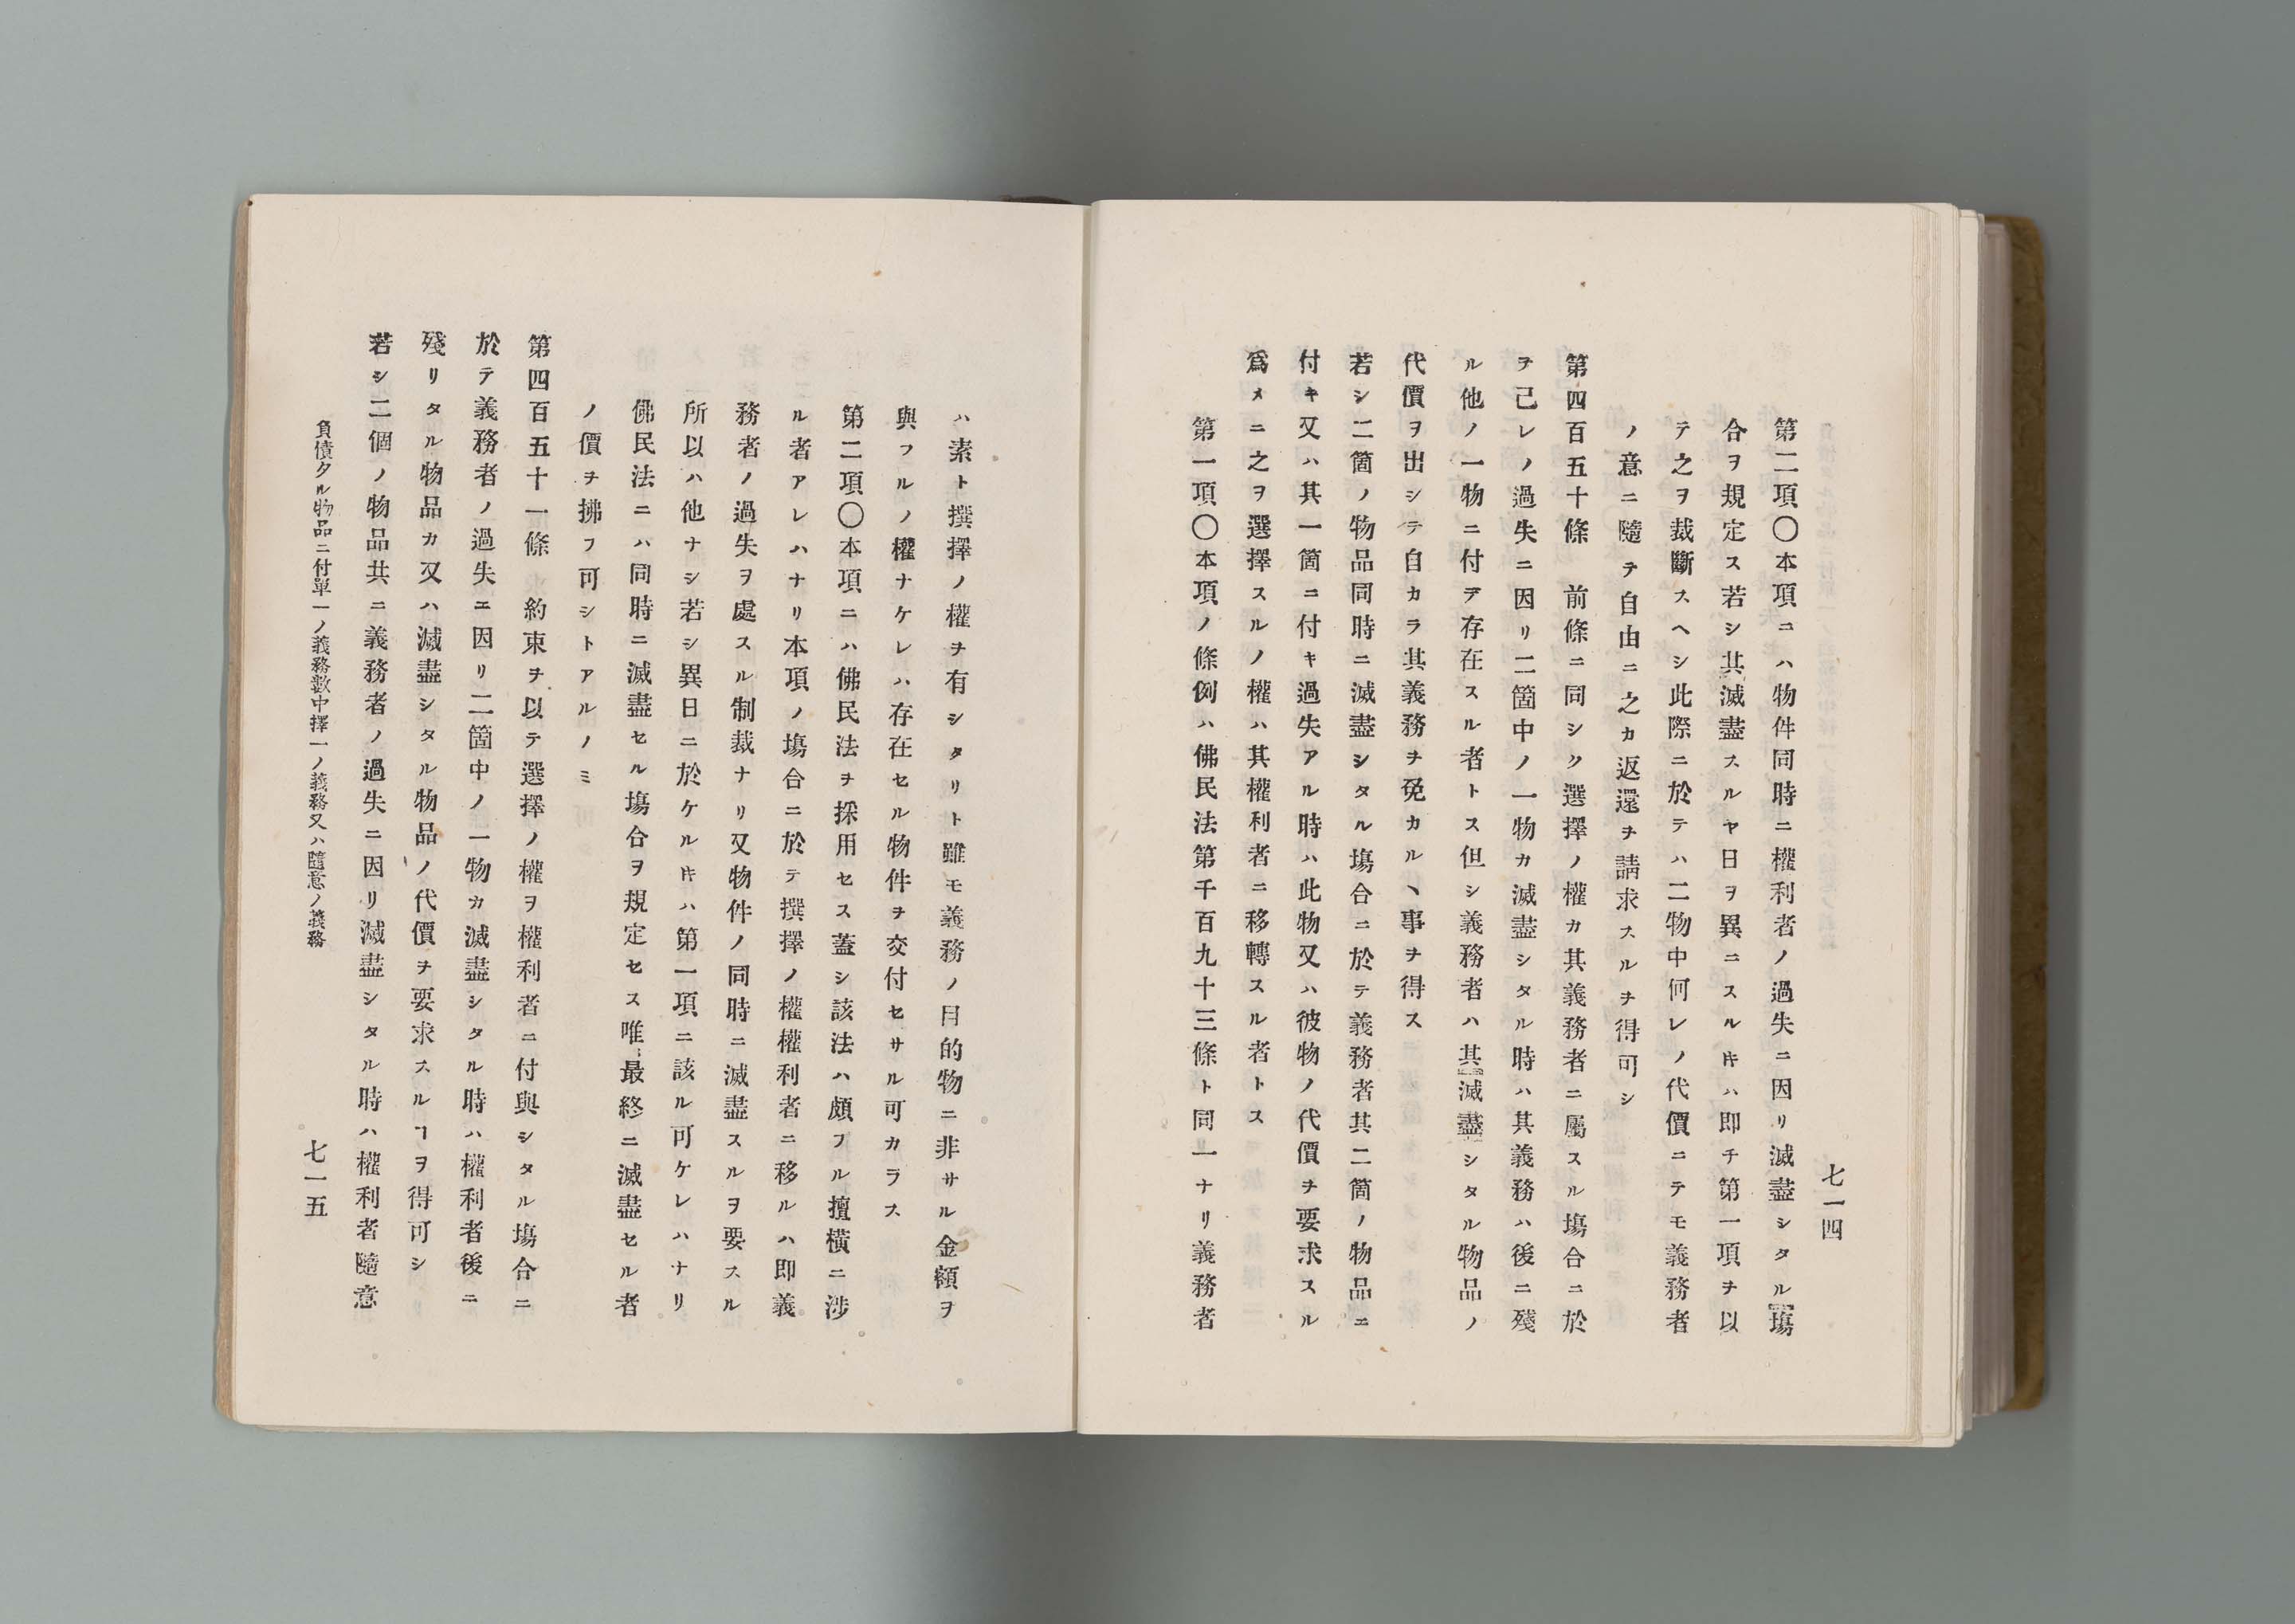 七一四
第二項〇本項ニハ物件同時ニ權利者ノ過失ニ因リ滅盡シタル塲
合ヲ規定ス若シ其滅盡スルヤ日ヲ異ニスルㇻハ即チ第一項ヲ以
テ之ヲ裁斷スヘシ此際ニ於テハ二物中何レノ代價ニテモ義務者
ノ意ニ隨テ自由ニ之カ返還ヲ請求スルヲ得可シ
第四百五十條　前條ニ同シク選擇ノ權カ其義務者ニ屬スル塲合ニ於
ヲ己レノ過失ニ因リ二箇中ノ一物カ滅盡シタル時ハ其義務ハ後ニ殘
ル他ノ一物ニ付テ存在スル者トス但シ義務者ハ其滅盡シタル物品ノ
代價ヲ出シテ自カラ其義務ヲ免カルヽ事ヲ得ス
若シ二箇ノ物品同時ニ滅盡シタル塲合ニ於テ義務者其二箇ノ物品ニ
付キ又ハ其一箇ニ付キ過失アル時ハ此物又ハ彼物ノ代價ヲ要求スル
爲メニ之ヲ選擇スルノ權ハ其權利者ニ移轉スル者トス
第一項〇本項ノ條例ハ佛民法第千百九十三條ト同一ナリ義務者
ハ素ト撰擇ノ權ヲ有シタリト雖モ義務ノ目的物ニ非サル金額ヲ
與フルノ權ナケレハ存在セル物件ヲ交付セサル可カラス
第二項〇本項ニハ佛民法ヲ採用セス蓋シ該法ハ頗フル擅橫ニ涉
ル者アレハナリ本項ノ塲合ニ於テ撰擇ノ權權利者ニ移ルハ即義
務者ノ過失ヲ處スル制裁ナリ又物件ノ同時ニ滅盡スルヲ要スル
所以ハ他ナシ若シ異日ニ於ケルㇻハ第一項ニ該ル可ケレハナリ
佛民法ニハ同時ニ滅盡セル塲合ヲ規定セス唯最終ニ滅盡セル者
ノ價ヲ拂フ可シトアルノミ
第四百五十一條　約束ヲ以テ選擇ノ權ヲ權利者ニ付與シタル塲合ニ
於テ義務者ノ過失ニ因リ二箇中ノ一物カ滅盡シタル時ハ權利者後ニ
殘リタル物品カ又ハ滅盡シタル物品ノ代價ヲ要求スルヿヲ得可シ
若シ二個ノ物品共ニ義務者ノ過失ニ因リ滅盡シタル時ハ權利者隨意
負債タル物品ニ付單一ノ義務數中擇一ノ義務又ハ隨意ノ義務
七一五